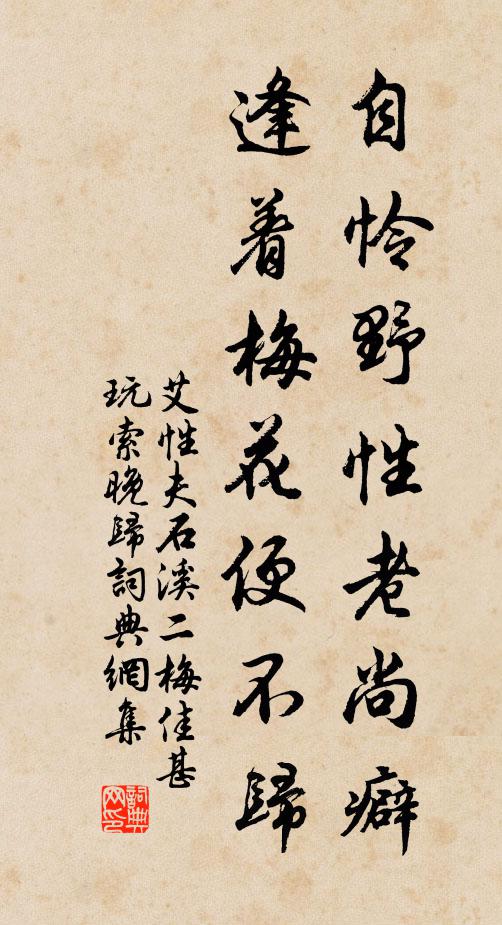 自怜野性老尚癖
逢着梅花便不歸
艾性夫石溪二梅佳甚
玩索晚歸詞典網集
詞典网印